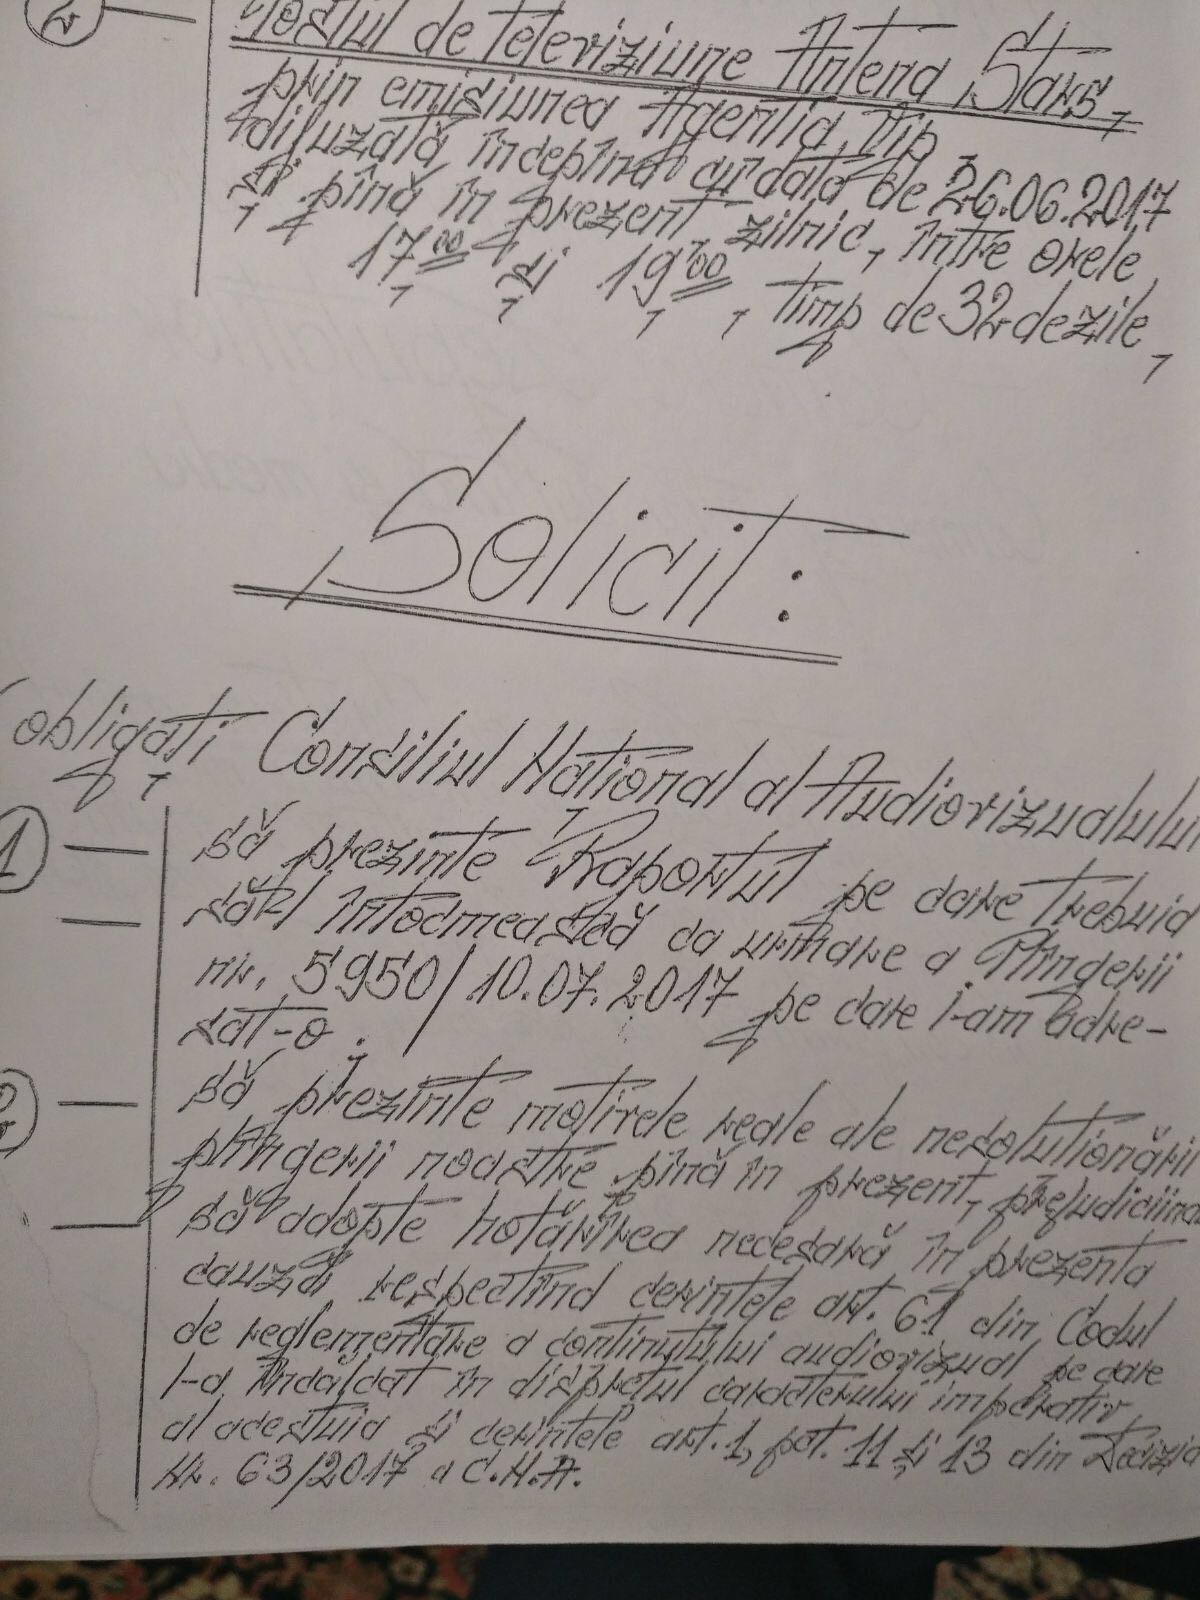 2 — Postul de televiziune Antena Stars,
prin emisiunea Agenția Vip
difuzată, începînd cu data de 26.06.2017
și pînă în prezent, zilnic, între orele
17⁰⁰ și 19⁰⁰, timp de 32 de zile,
Solicit:
obligați Consiliul Național al Audiovizualului
1 — să prezinte Raportul pe care trebuia
— să-l întocmească ca urmare a Plîngerii
nr. 5950/10.07.2017 pe care i-am adre-
sat-o;
2 — să prezinte motivele reale ale nesoluționării
plîngerii noastre pînă în prezent, prejudiciind
— să adopte hotărîrea necesară în prezenta
cauză, respectînd cerințele art. 61 din Codul
de reglementare a conținutului audiovizual pe care
l-a încălcat în disprețul caracterului imperativ
al acestuia și cerințele art. 1, pct. 11 și 13 din Decizia
Nr. 63/2017 a C.N.A.